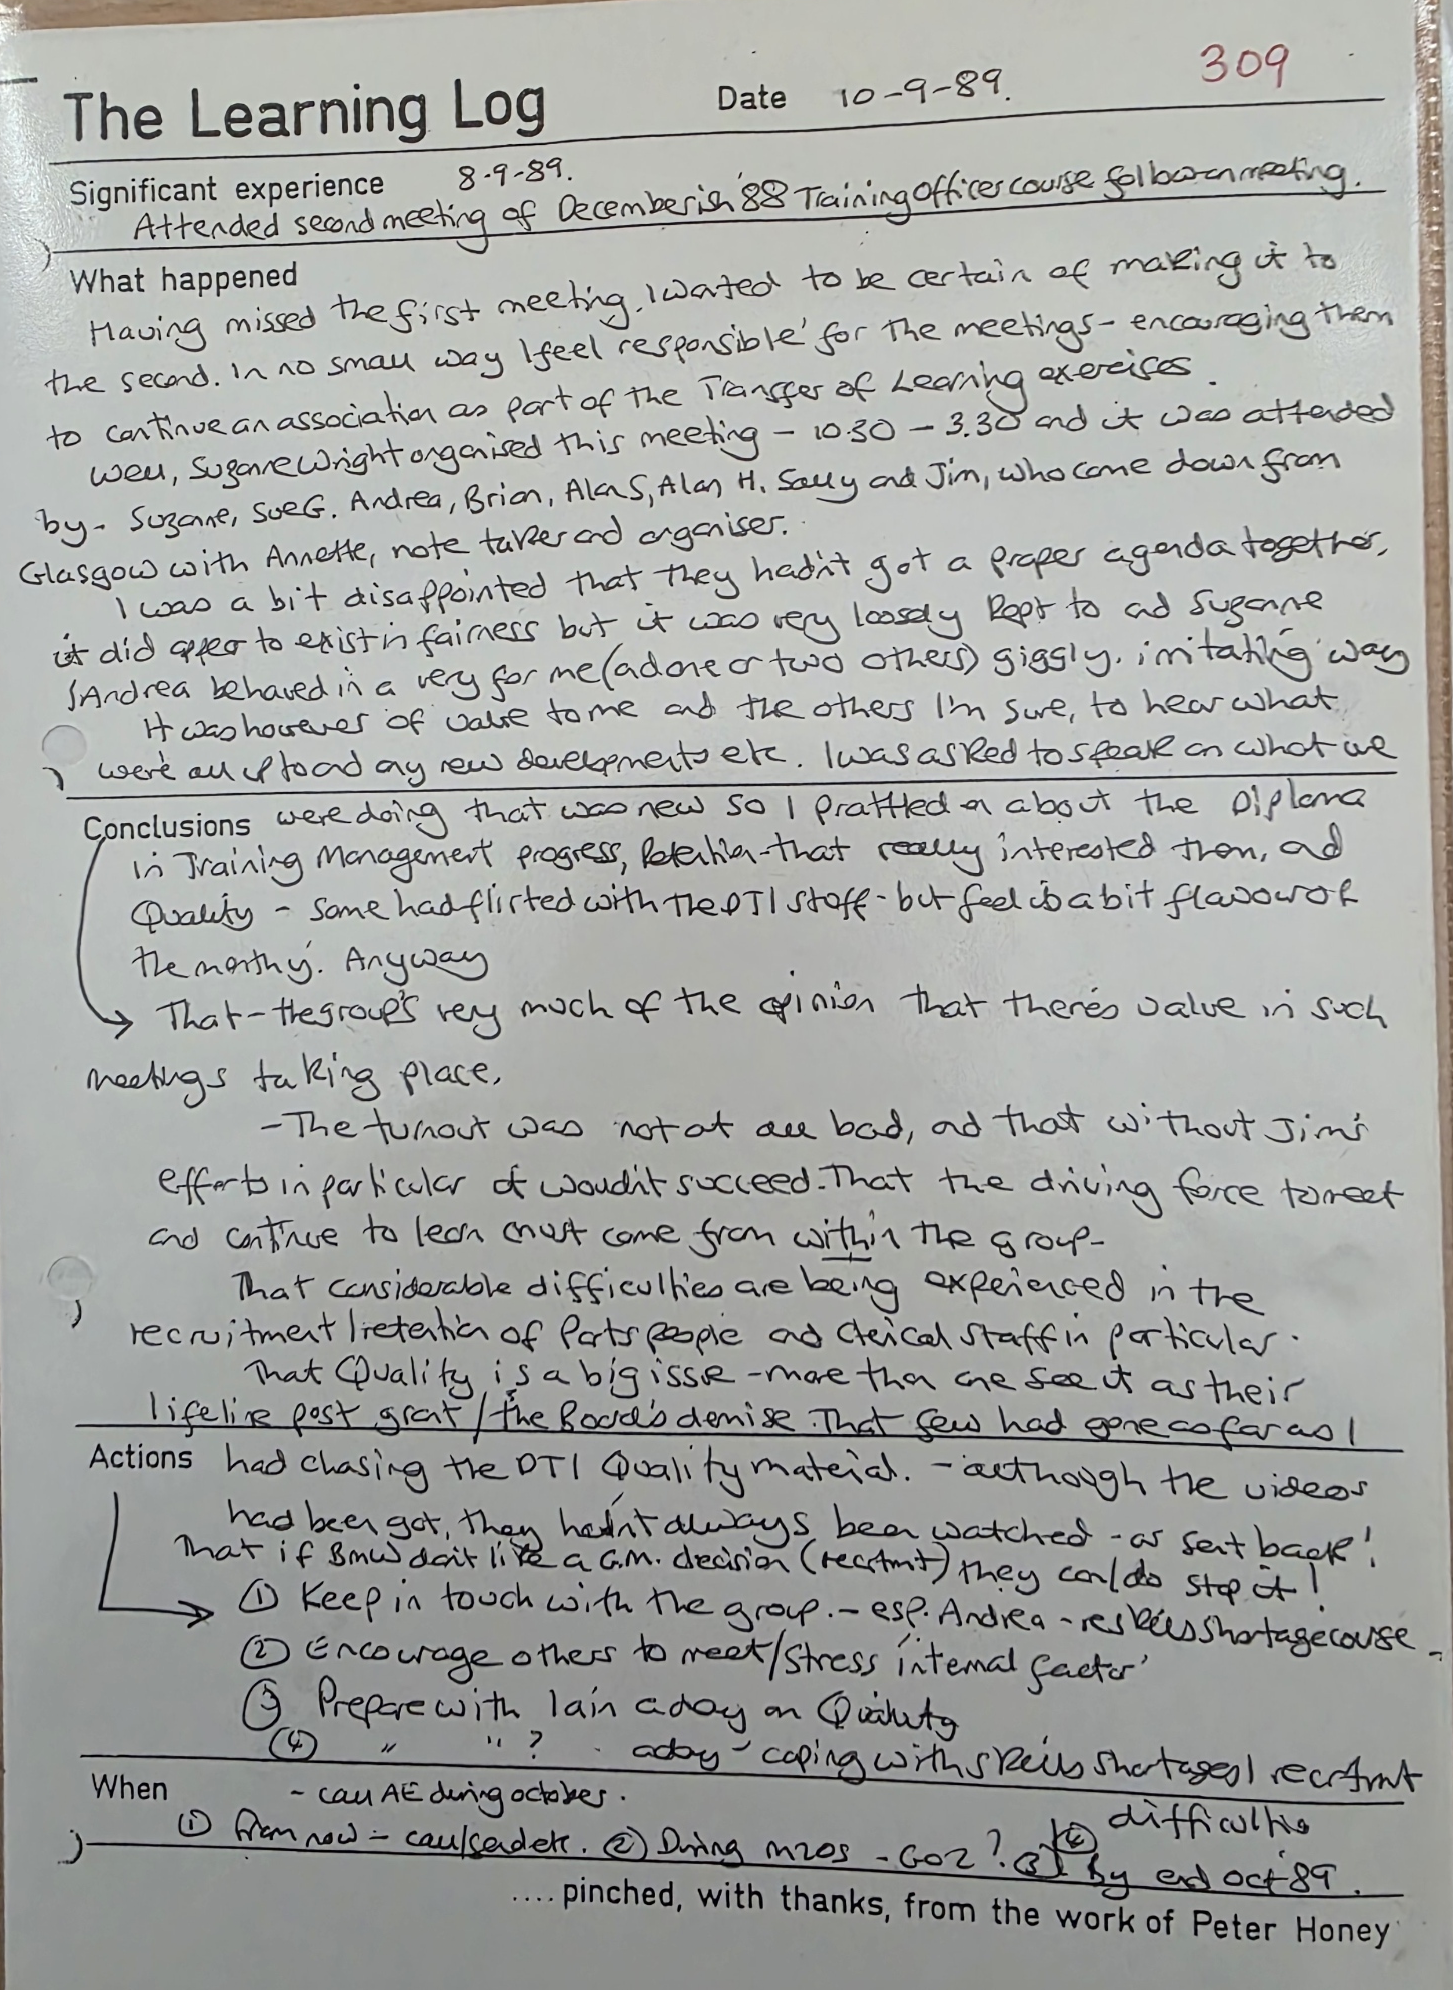 309
The Learning Log Date 10-9-89.
Significant experience 8.9-89.
Attended second meeting of Decemberish '88 Training Officer course follow on meeting.
What happened
Having missed the first meeting, I wanted to be certain of making it to
the second. In no small way I feel 'responsible' for the meetings - encouraging them
to continue an association as part of the Transfer of Learning exercises.
Well, Suzanne Wright organised this meeting - 10.30 - 3.30 and it was attended
by - Suzanne, Sue G. Andrea, Brian, Alan S, Alan H. Sally and Jim, who came down from
Glasgow with Annette, note taker and organiser.
I was a bit disappointed that they hadn't got a proper agenda together,
it did appear to exist in fairness but it was very loosely kept to and Suzanne
/Andrea behaved in a very for me (and one or two others) giggly, irritating way
It was however of value to me and the others I'm sure, to hear what
we're all up to and any new developments etc. I was asked to speak on what we
Conclusions were doing that was new so I prattled on about the Diploma
in Training Management progress, Retention - that really interested them, and
Quality - some had flirted with the DTI stuff - but feel it's a bit 'flavour of
the monthy'. Anyway
That - the group's very much of the opinion that there's value in such
meetings taking place.
- The turnout was not at all bad, and that without Jim's
efforts in particular it wouldn't succeed. That the driving force to meet
and continue to learn must come from within the group -
That considerable difficulties are being experienced in the
recruitment/retention of Parts people and clerical staff in particular.
That Quality is a big issue - more than one see it as their
lifeline post grant/the Board's demise. That few had gone as far as I
Actions had chasing the DTI Quality material. - although the videos
had been got, they hadn't always been watched - as sent back!
That if BMW don't like a G.M. decision (recrtmt) they can/do stop it!
① Keep in touch with the group. - esp. Andrea - re skills shortage course
② Encourage others to meet/stress 'internal factor'
③ Prepare with Iain a day on Quality
④ " " ? a day - coping with skills shortages/recrtmt
difficulties
When - call AE during october.
① From now - call/send etc. ② During M20s - G02? ③ + ④ by end Oct 89.
.... pinched, with thanks, from the work of Peter Honey